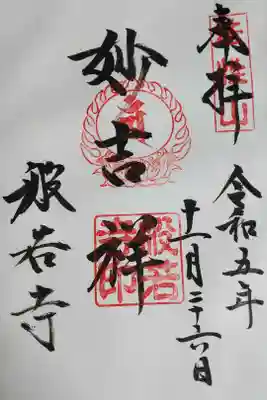 奉拝
令和五年
十一月二十六日
妙吉祥
般若寺